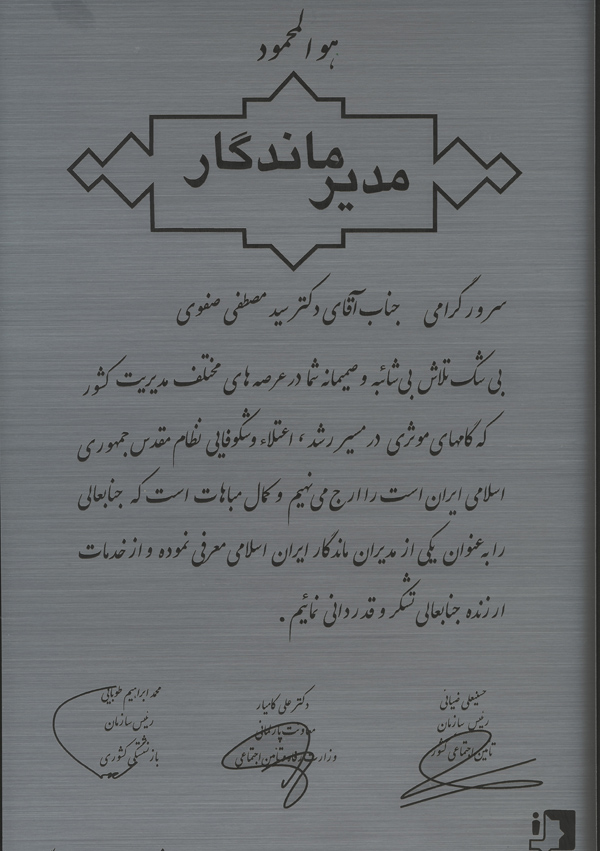 هوالمحمود
مدیر ماندگار
سرور گرامی جناب آقای دکتر سید مصطفی صفوی
بی شک تلاش بی شائبه و صمیمانه شما در عرصه های مختلف مدیریت کشور
که گامهای موثری در مسیر رشد ، اعتلاء و شکوفایی نظام مقدس جمهوری
اسلامی ایران است را ارج می نهیم و کمال مباهات است که جنابعالی
را به عنوان یکی از مدیران ماندگار ایران اسلامی معرفی نموده و از خدمات
ارزنده جنابعالی تشکر و قدردانی نمائیم .
حسینعلی ضیائی
رئیس سازمان
تامین اجتماعی کشور
دکتر علی کائیار
معاونت پارلمانی
وزارت رفاه و تامین اجتماعی
محمد ابراهیم طوبایی
رئیس سازمان
بازنشستگی کشوری